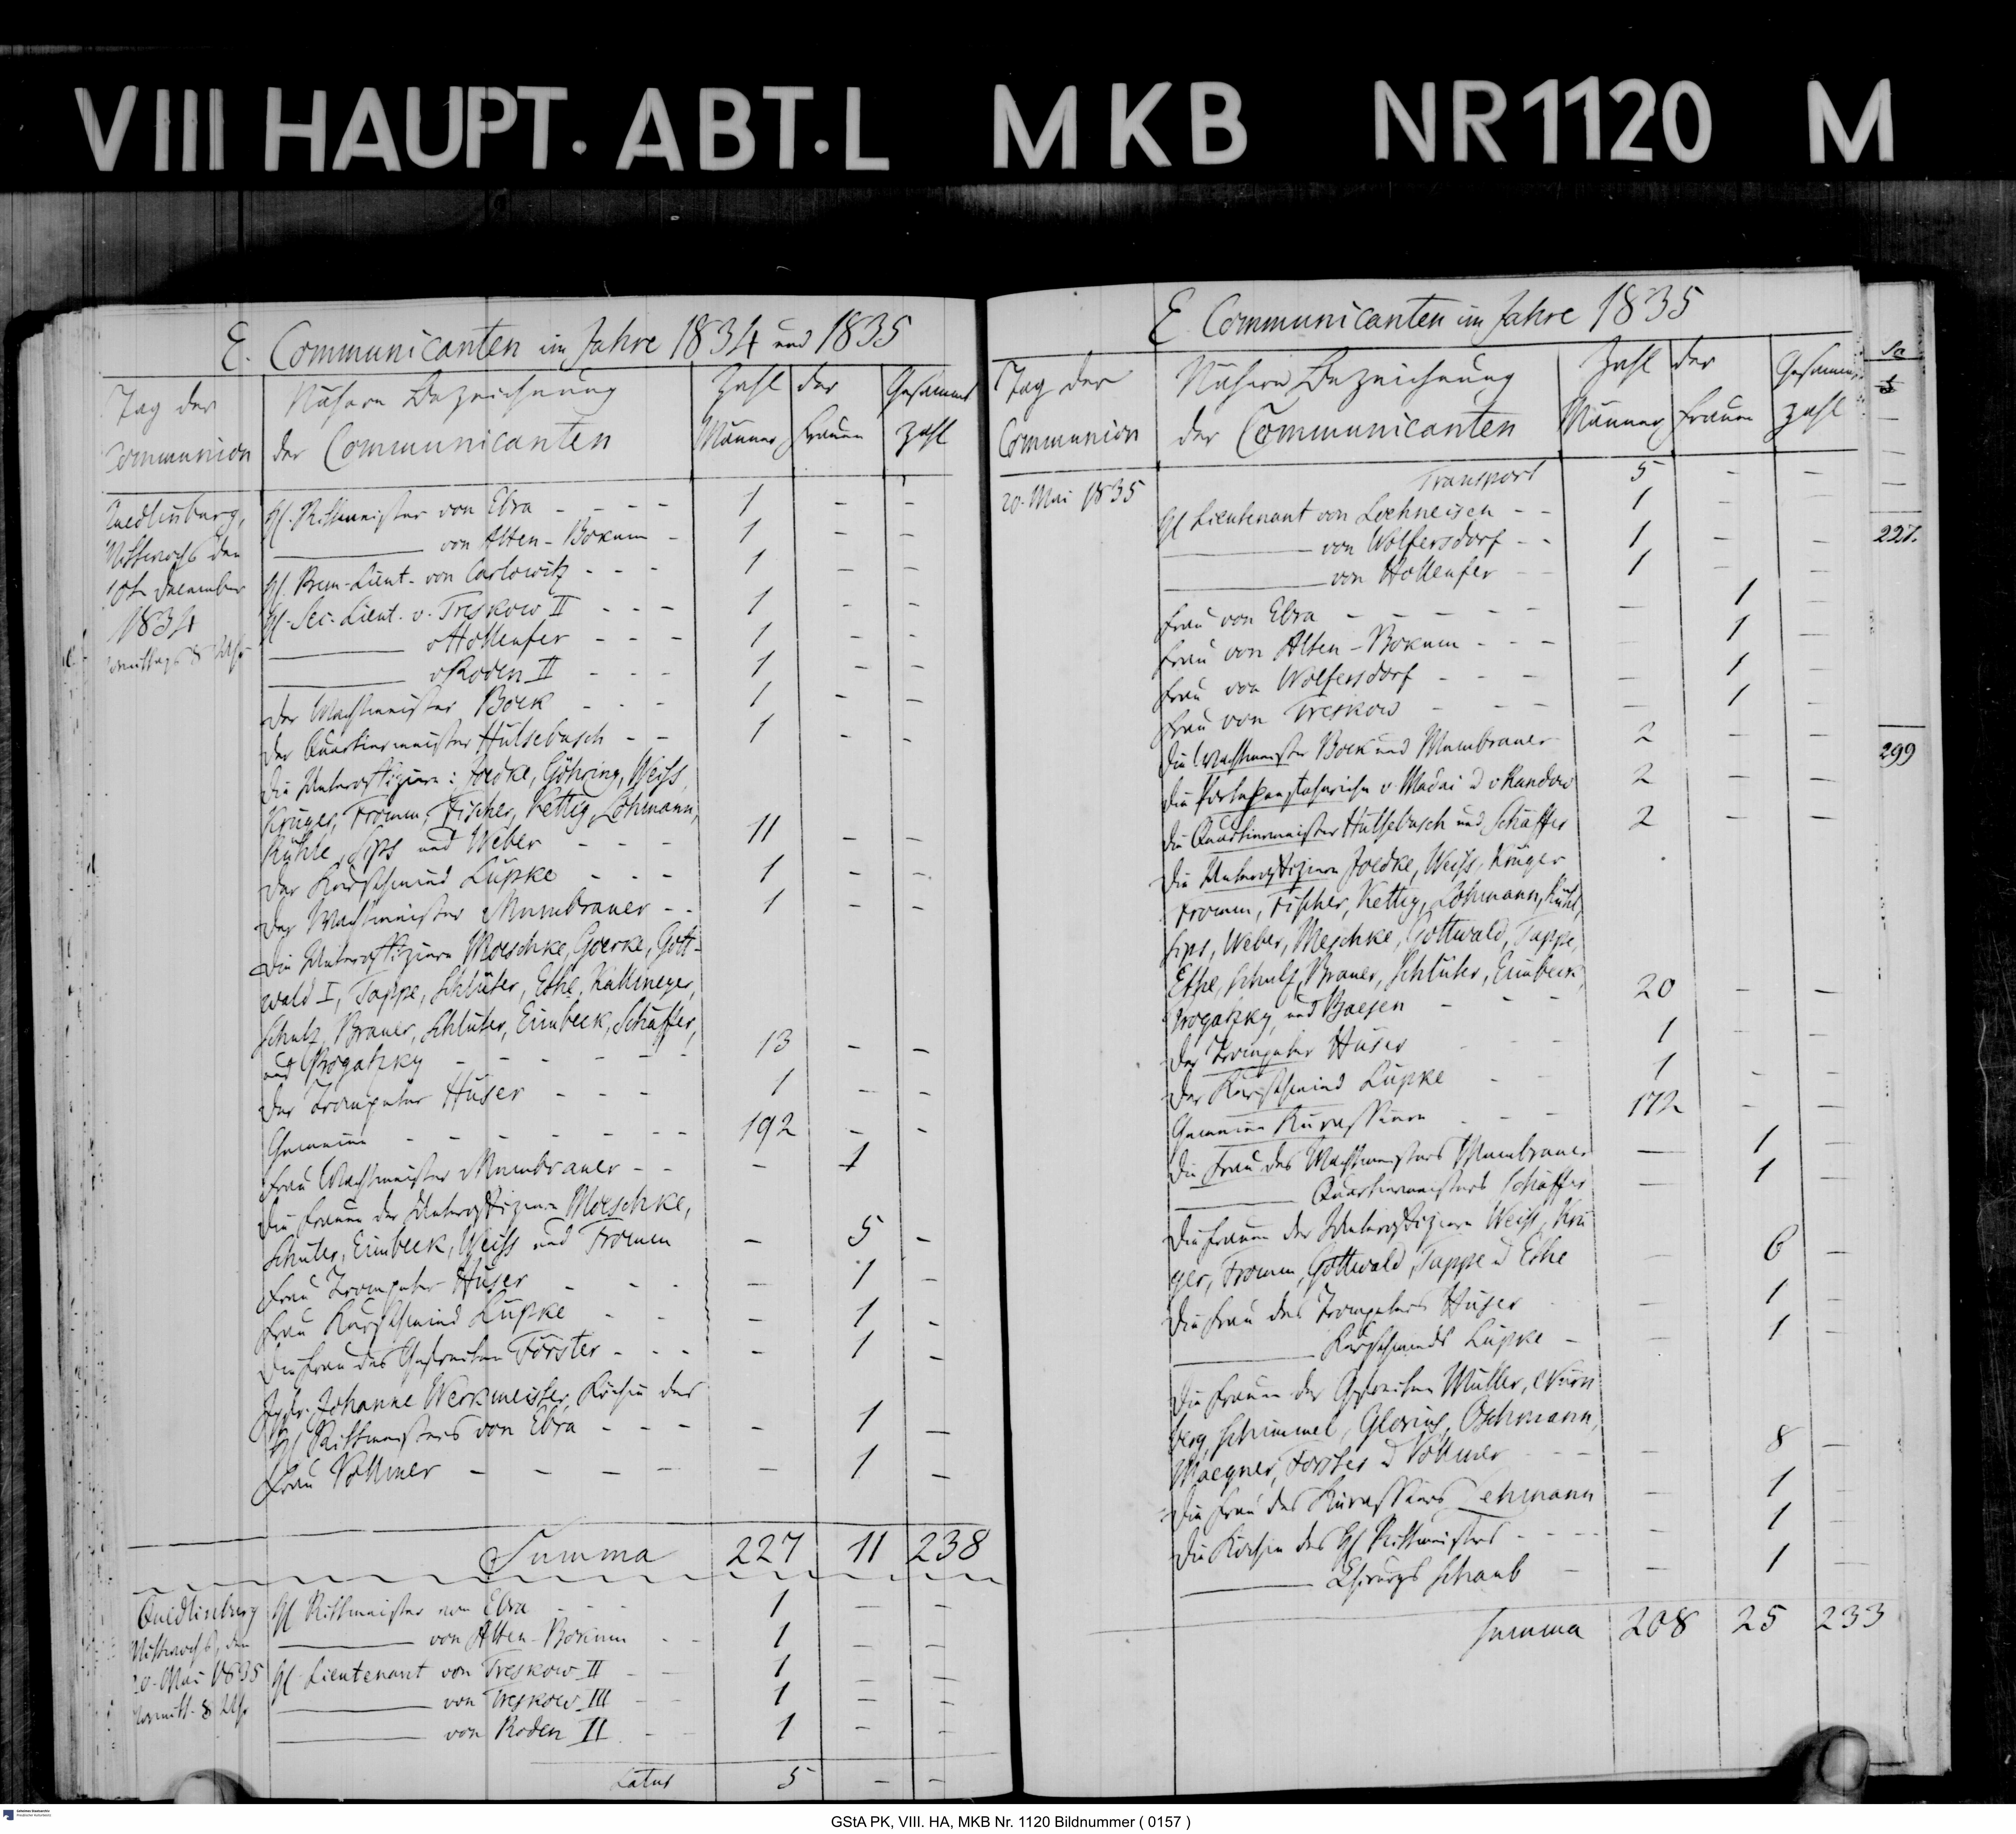 VIII HAUPT. ABT. L MKB NR 1120 M
E. Communicanten im Jahre 1834 und 1835
Tag der Communion
Nähere Bezeichnung der Communicanten
Zahl der
Männer Frauen
Gesammt zahl
Quedlinburg, Mittwochs den 10t December 1834 vormittags 8 Uhr
H. Rittmeister von Ebra - - - - 1 - -
——— von Alten-Bokum - 1 - -
H. Prem-Lieut. von Carlowitz - - - 1 - -
H. Sec. Lieut. v. Treskow II - - - 1 - -
——— v Holleufer - - - 1 - -
——— v Roden II - - - 1 - -
Der Wachtmeister Bock - - - 1 - -
Der Quartiermeister Hülsebusch - - 1 - -
Die Unteroffiziere: Joedke, Göhring, Weiss,
Krüger, Fromm, Fischer, Kettig, Lohmann,
Kühle, Lips und Weber - - - 11 - -
Der Kurschmied Lüpke - - - 1 - -
Der Wachtmeister Mumbrauer - - 1 - -
Die Unteroffiziere Moeschke, Goerke, Gott-
wald I, Tappe, Schlüter, Ethe, Kallmeyer,
Schulz, Brauer, Schlüter, Eimbeck, Schäffer,
und Rogatzky - - - - - - 13 - -
Der Trompeter Huser - - - 1 - -
Gemeine - - - - - - - 192 - -
Frau Wachtmeister Mumbrauer - - - 1
Die Frauen der Unteroffiziere Moeschke,
Schüter, Eimbeck, Weiss und Fromm - 5 -
Frau Trompeter Huser - - - - 1 -
Frau Kurschmied Lüpke - - - 1 -
Die Frau des Gefreiten Förster - - - - 1 -
Jgfr. Johanne Werkmeister, Köchin des
H Rittmeisters von Ebra - - - - 1 -
Frau Vollmer - - - - - 1 -
Summa 227 11 238
Quedlinburg Mittwochs, den 20. Mai 1835 vormitt. 8 Uhr
H Rittmeister von Ebra 1 - -
——— von Alten-Bokum - - 1 - -
H Lieutenant von Treskow II - 1 - -
——— von Treskow III - - 1 - -
——— von Roden II - - 1 - -
Latus 5 - -
E Communicanten im Jahre 1835
Tag der Communion
Nähere Bezeichnung der Communicanten
Zahl der
Männer Frauen
Gesammt zahl
20. Mai 1835
Transport 5 - -
H Lieutenant von Loehneisen - - 1 - -
——— von Wolfersdorf - - 1 - -
——— von Hollenfer - - 1 - -
Frau von Ebra - - - - - - - 1 -
Frau von Alten-Bokum - - - 1 -
Frau von Wolfersdorf - - - - 1 -
Frau von Treskow - - - - 1 -
Die Wachtmeister Bock und Mumbrauer 2 - -
Die Portepeefähnriche v. Madai u v Randow 2 - -
Die Quartiermeister Hülsebusch und Schäffer 2 - -
Die Unteroffiziere Joedke, Weiss, Krüger
Fromm, Fischer, Kettig, Lohmann, Kühl,
Lips, Weber, Meschke, Gottwald, Tappe,
Ethe, Schulz, Brauer, Schlüter, Eimbeck,
Rogatzky, und Baesen - - - 20 - -
Der Trompeter Huser - - 1 - -
Der Kurschmied Lüpke - - 1 - -
Gemeine Kurassiere - - 172 - -
Die Frau des Wachtmeisters Mumbrauer - 1 -
——— Quartiermeisters Schäffer - 1 -
Die Frauen der Unteroffiziere Weiss, Krü
ger, Fromm, Gottwald, Tappe u Ethe - 6 -
Die Frau des Trompeters Huser - 1 -
——— Kurschmieds Lüpke - - 1 -
Die Frauen der Gefreiten Müller, Nürn
berg, Schimmel, Glorius, Oschmann,
Waegner, Forster u Vollmer - - - - 8 -
Die Frau des Kurassiers Lehmann 1 -
Die Köchin des H Rittmeisters - - - - - 1 -
——— Chirurgs Schaub - - 1 -
Summa 208 25 233
227.
299
GStA PK, VIII. HA, MKB Nr. 1120 Bildnummer ( 0157 )